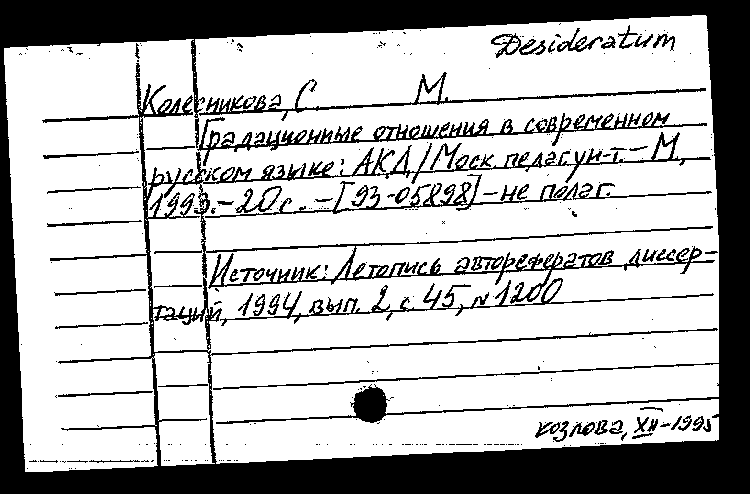 Desideratum
Колесникова, С. М.
Градационные отношения в современном
русском языке: АКД/Моск. педаг. ун-т. – М,
1993. – 20 с. – [93-05898] – не полаг.
Источник: Летопись авторефератов диссер-
таций, 1994, вып. 2, с. 45, № 1200
козлова, XII-1995